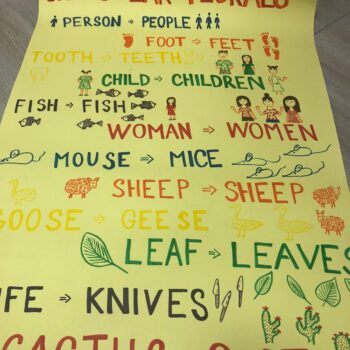 PERSON → PEOPLE
FOOT → FEET
TOOTH → TEETH
CHILD → CHILDREN
FISH → FISH
WOMAN → WOMEN
MOUSE → MICE
SHEEP → SHEEP
GOOSE → GEESE
LEAF → LEAVES
→ KNIVES